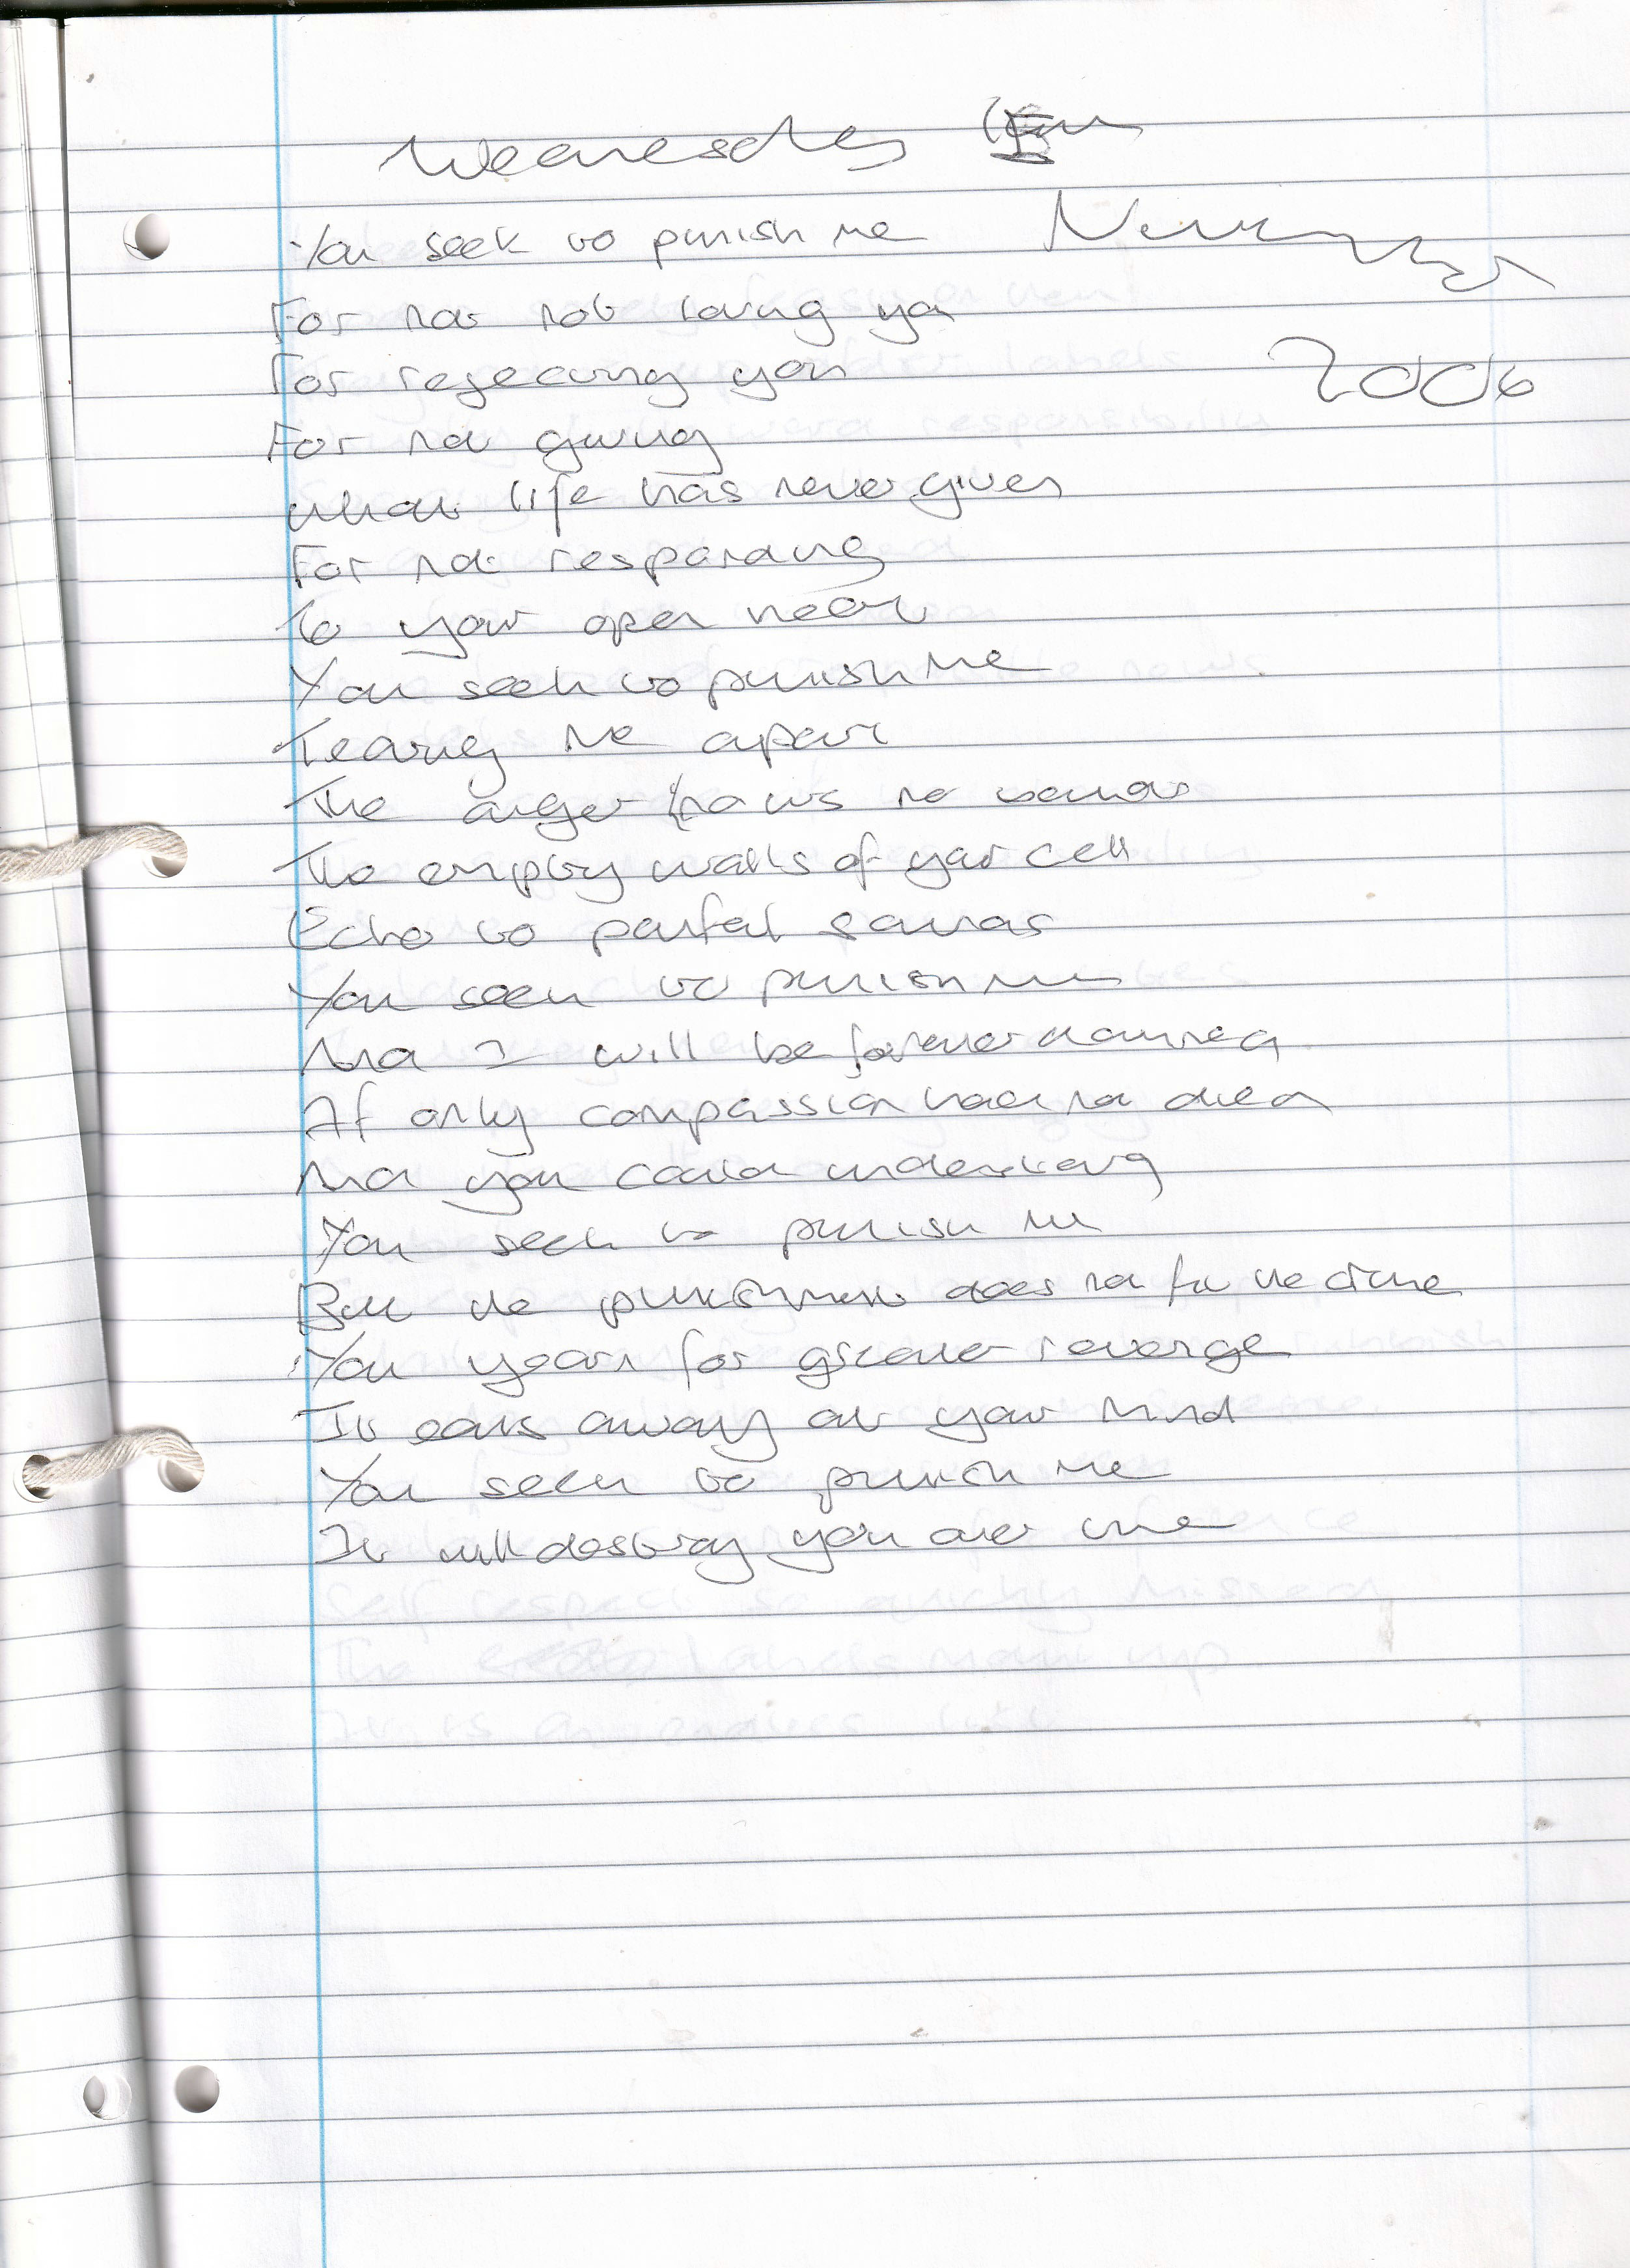 Wednesday
November
2006
You seek to punish me
For not not loving you
For rejecting you
For not giving
What life has never given
For not responding
To your open heart
You seek to punish me
Tearing me apart
The anger knows no bounds
The empty walls of your cell
Echo to painful sounds
You seek to punish me
And I will be forever damned
If only compassion had not died
And you could understand
You seek to punish me
But the punishment does not fit the crime
You yearn for greater revenge
It eats away at your mind
You seek to punish me
It will destroy you over time